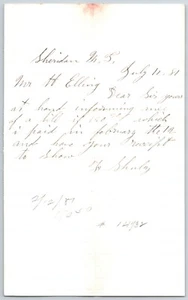 Sheridan M. T.
July 10 - 81
Mr H Elling
Dear Sir yours
at hand informing me
of a bill of 100 which
i paid in february
and have your Receipt
to Show
2/2/81